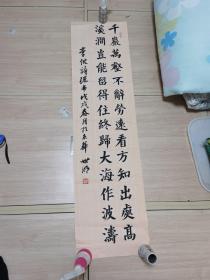 千巖萬壑不辭勞遠看方知出處高
溪澗豈能留得住終歸大海作波濤
李忱詩 戊戌春月於京華 世